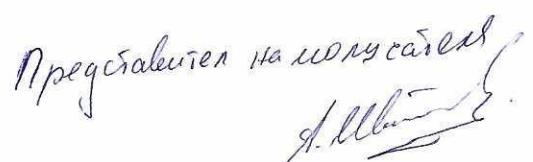 Представител на получателя